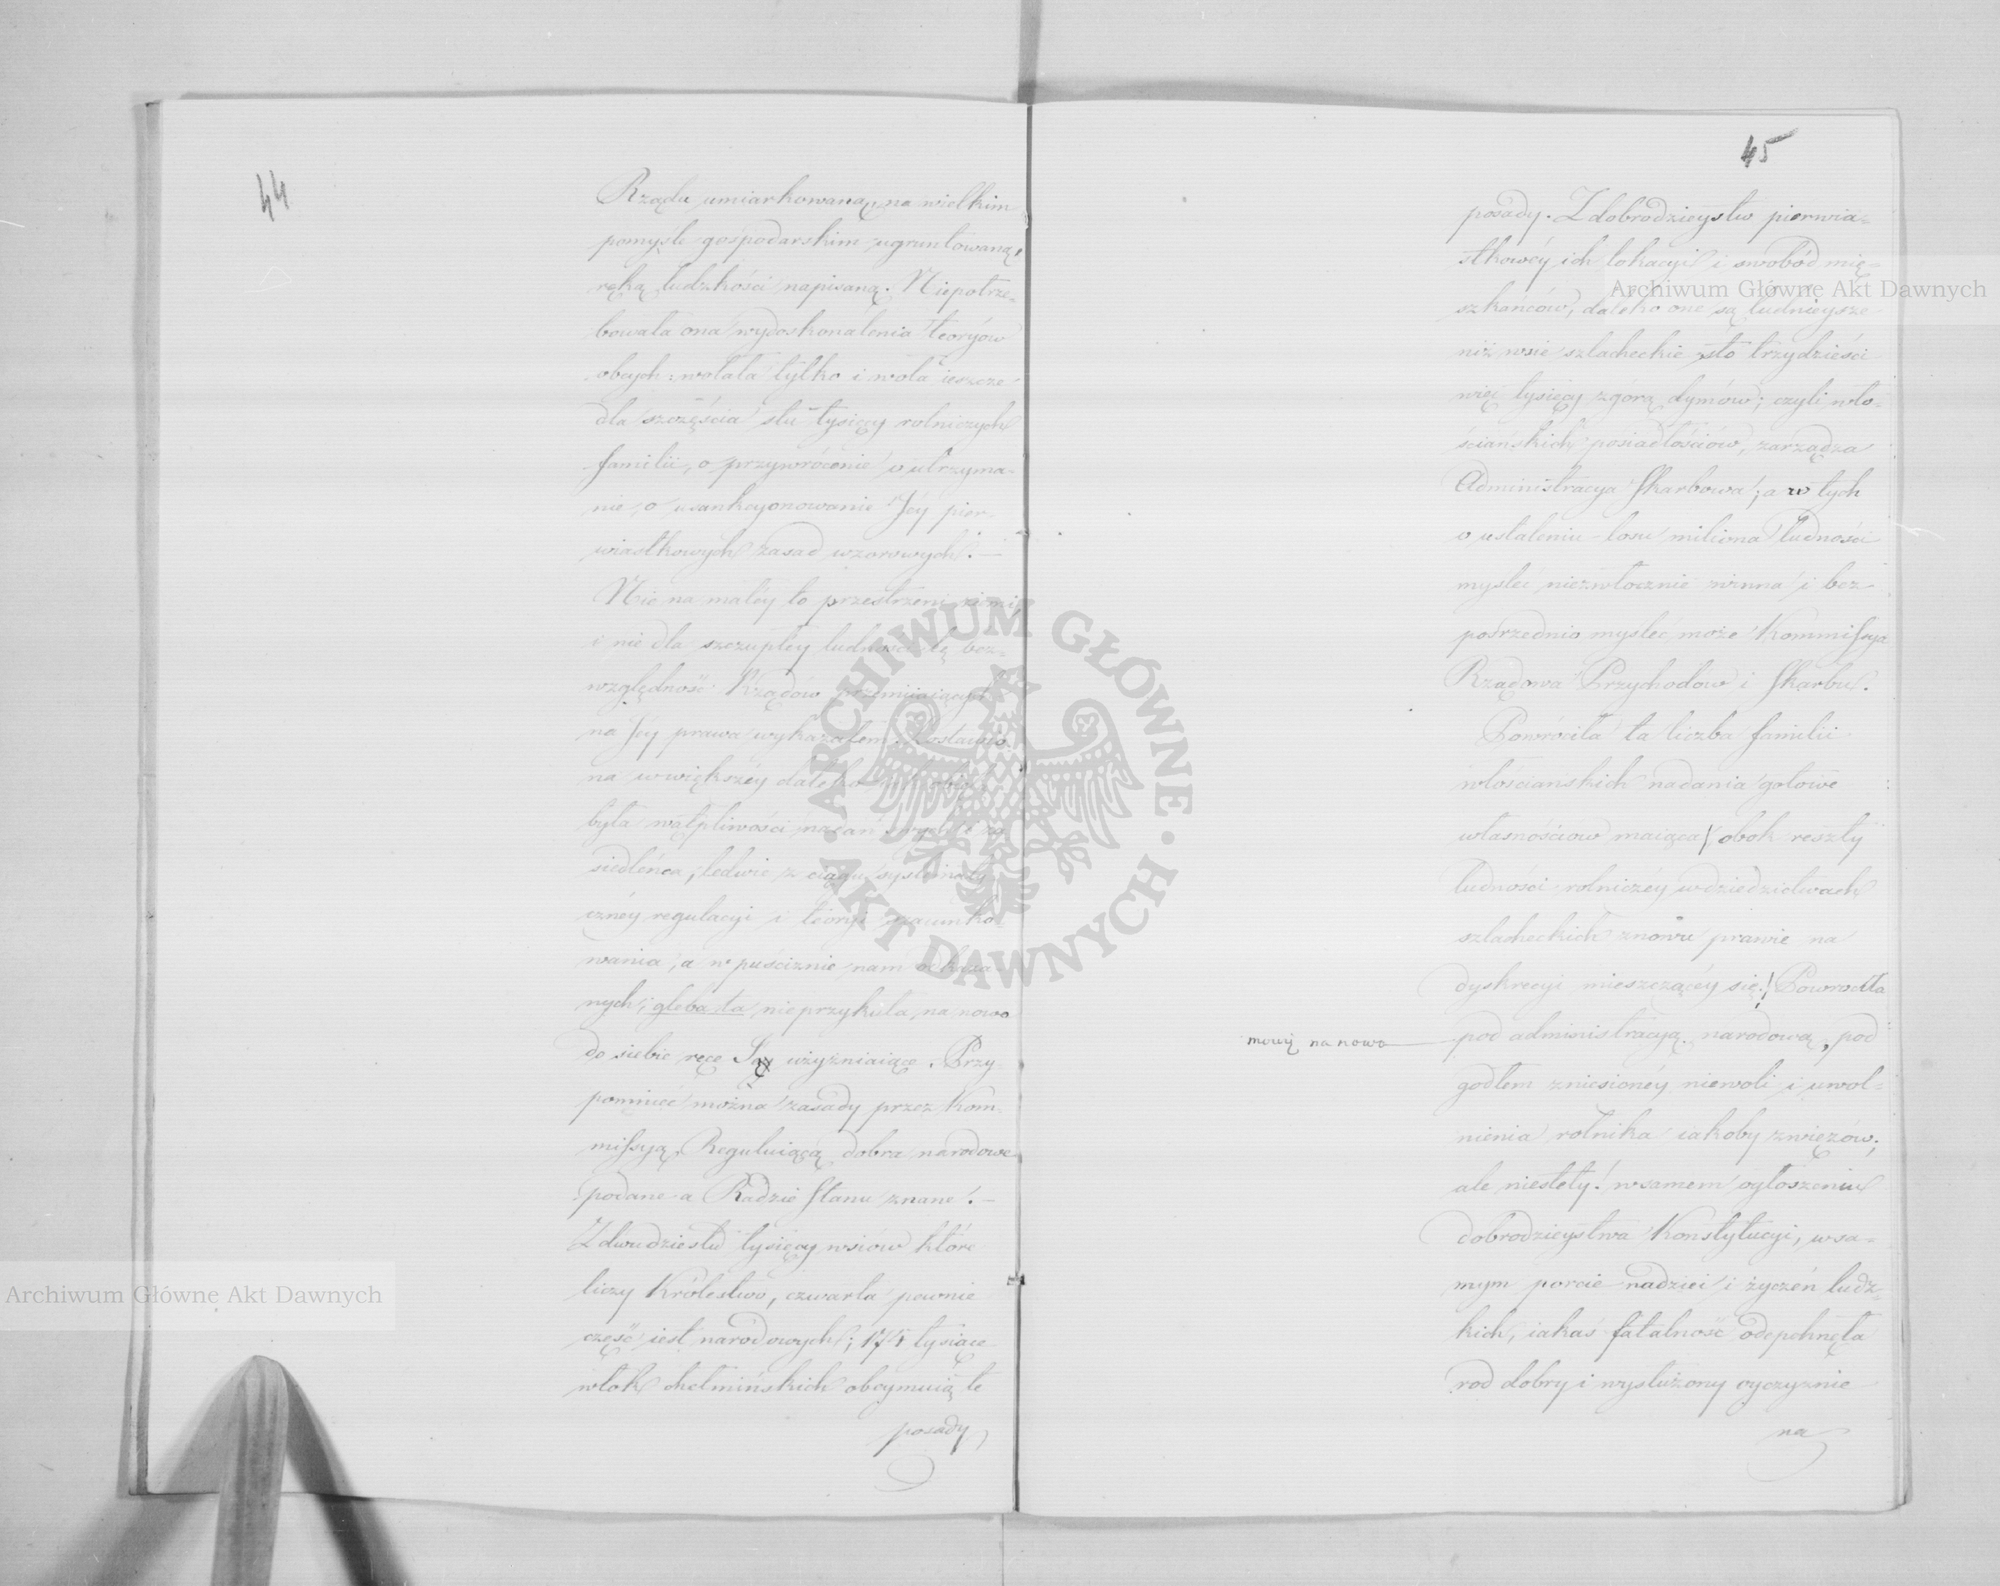 44
Rządu umiarkowaną, na wielkim
pomyśle gospodarskim ugruntowaną,
ręką ludzkości napisaną. Niepotrze-
bowała ona wydoskonalenia teoryów
obcych; wołała tylko i woła ieszcze
dla szczęścia stu tysięcy rolniczych
familii, o przywrócenie, o utrzyma-
nie, o usankcyonowanie Jéy pier-
wiastkowych zasad wzorowych. —
Nie na małéy to przestrzeni ziemi,
i nie dla szczupłéy ludności tę bez-
względność Rządów przemijaiących
na Jéy prawa wykazałem. Zostawio-
na w większéy daleko
była wątpliwości nadań
siedleńca, ledwie z ciągu systematy-
cznéy regulacyi i teoryi szacunko-
wania, a w puściznie nam okaza-
nych; gleba ta nieprzykuła na nowo
do siebie ręce Ią użyźniaiące. Przy-
pomnieć można zasady przez Kom-
missyą Reguluiącą dobra narodowe
podane a Radzie Stanu znane. —
Z dwudziestu tysięcy wsiów które
liczy Królestwo, czwarta pewnie
część iest narodowych; 174 tysiące
włok chełmińskich obeymuią te
posady
45
posady. Z dobrodzieystw pierwia-
stkowéy ich lokacyi i swobód mię-
szkańców, daleko one są ludnieysze
niż wsie szlacheckie, sto trzydzieści
więc tysięcy zgórą dymów, czyli wło-
ściańskich posiadłościów, zarządza
Administracya Skarbowa; a w tych
o ustaleniu losu miliona ludności
mysleć niezwłocznie winna i bez
pośrzednio mysleć może Kommissya
Rządowa Przychodów i Skarbu.
Powróciła ta liczba familii
włościańskich nadania gołowe
własnościow maiąca, obok reszty
ludności rolniczéy w dziedzictwach
szlacheckich znowu prawie na
dyskrecyi mieszczącéy się! Powrociła
mowię na nowo
pod administracyą narodową, pod
godłem zniesionéy niewoli i uwol-
nienia rolnika iakoby zwięzów;
ale niestety! w samem ogłoszeniu
dobrodzieystwa Konstytucyi, w sa-
mym porcie nadziei i życzeń ludz-
kich, iakaś fatalność odepchnęła
rod dobry i wysłużony oyczyznie
na
Archiwum Główne Akt Dawnych
Archiwum Główne Akt Dawnych
ARCHIWUM GŁÓWNE · AKT DAWNYCH ·